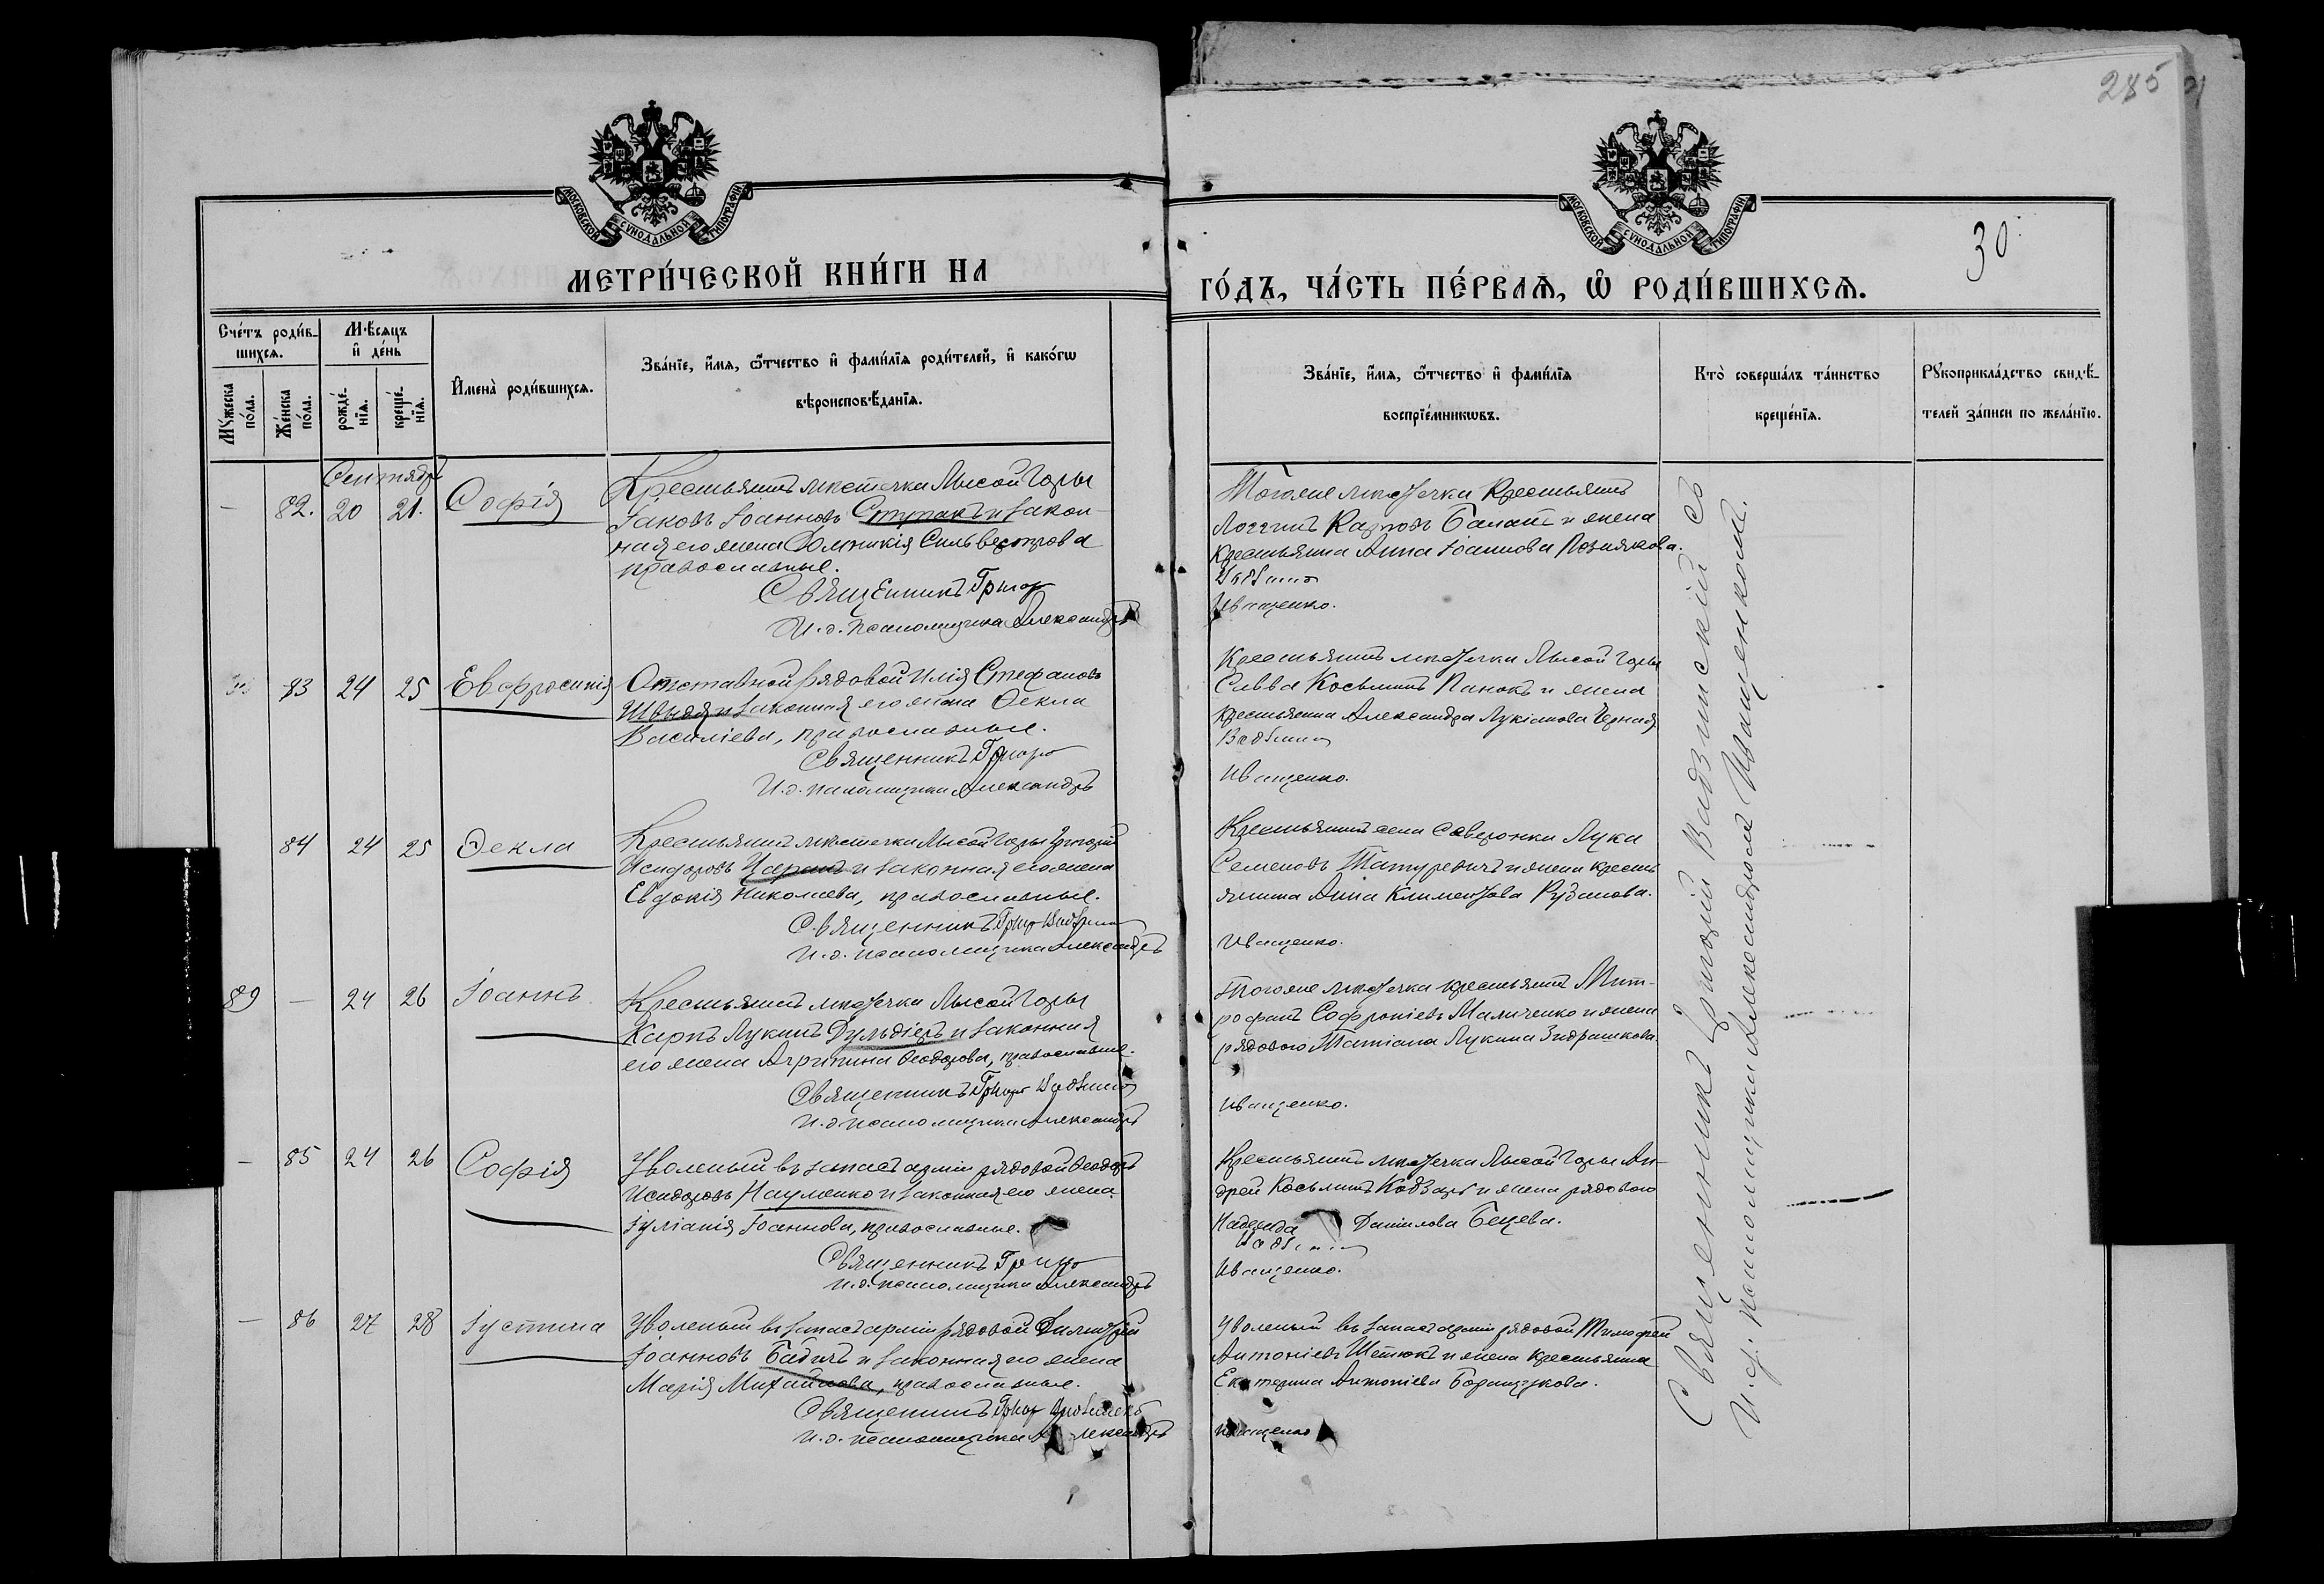 285
30
МОСКОВСКОЙ СѴНОДАЛЬНОЙ ТИПОГРАФІИ
МОСКОВСКОЙ СѴНОДАЛЬНОЙ ТИПОГРАФІИ
МЕТРИ́ЧЕСКОЙ КНИ́ГИ НА
ГО́ДЪ, ЧА́СТЬ ПЕ́РВАѦ, Ѽ РОДИ́ВШИХСѦ.
Сче́тъ роди́в-
шихсѧ.
Мѣсѧцъ
и҆ де́нь
Мꙋжеска по́ла.
Же́нска по́ла.
рожде́-нїѧ.
креще́-нїѧ.
И҆мена̀ роди́вшихсѧ.
Зва́нїе, и҆́мѧ, ѻ҆́тчество и҆ фами́лїѧ роди́телей, и҆ како́гѡ
вѣроисповѣ́данїѧ.
Зва́нїе, и҆́мѧ, ѻ҆́тчество и҆ фами́лїѧ
воспрїе́мникѡвъ.
Кто̀ соверша́лъ та́инство
креще́нїѧ.
Рꙋкоприкла́дство свидѣ́-
телей за́писи по жела́нїю.
Сентября
— 82. 20 21. Софія
Крестьянинъ мѣстечка Лысой Горы
Іаковъ Іоанновъ Ступакъ и закон-
ная его жена Домникія Сильвестрова
православные.
Священникъ Григор
И. д. псаломщика Александръ
Тогоже мѣстечка крестьянинъ
Логгинъ Карповъ и жена
крестьянина Анна Іоаннова Познякова.
Иващенко.
83 24 25 Евфросинія
Отставной рядовой Илія Стефановъ
Швыдя и законная его жена Ѳекла
Василіева, православные.
Священникъ Григор
И. д. псаломщика Александръ
Крестьянинъ мѣстечка Лысой Горы
Савва Косьминъ Панокъ и жена
крестьянина Александра Лукіанова Черная
Иващенко.
84 24 25 Ѳекла
Крестьянинъ мѣстечка Лысой Горы Григорій
Исидоровъ Царанъ и законная его жена
Евдокія Николаева, православные.
Священникъ Григор
И. д. псаломщика Александръ
Крестьянинъ села Саверонки Лука
Семеновъ Татуревичъ и жена кресть
янина Анна Климентова
Иващенко.
89 — 24 26 Іоаннъ
Крестьянинъ мѣстечка Лысой Горы
Карпъ Лукинъ Дульдіеръ и законная
его жена Агрипина Ѳеодорова, православные.
Священникъ Григор
И. д. псаломщика Александръ
Тогоже мѣстечка крестьянинъ Мит-
рофанъ Софроніевъ Маличенко и жена
рядового Татіана Лукина
Иващенко.
— 85 24 26 Софія
Уволеный въ запасъ арміи рядовой Ѳеодоръ
Исидоровъ Науменко и законная его жена
Іуліанія Іоаннова, православные.
Священникъ Григор
И. д. псаломщика Александръ
Крестьянинъ мѣстечка Лысой Горы Ан-
дрей Косьминъ Кобзарь и жена рядового
Надежда Даніилова Бецева.
Иващенко.
— 86 27 28 Іустина
Уволеный въ запасъ арміи рядовой Димитрій
Іоанновъ Бабичъ и законная его жена
Марія Михайлова, православные.
Священникъ Григор
И. д. псаломщика Александръ
Уволеный въ запасъ арміи рядовой Тимофей
Антоніевъ Шетюкъ и жена крестьянина
Екатерина Антоніева
Иващенко
Священникъ Григорій Вадзинскій съ
И. д. псаломщика Александромъ Иващенкомъ.